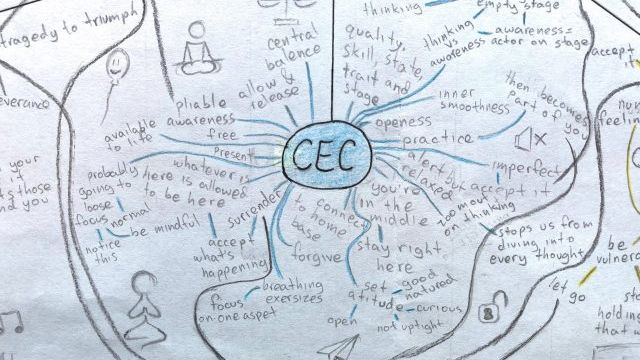 tragedy to triumph
everance
central
balance
allow &
release
pliable
awareness
free
available
to life
Present
probably
going to
loose
focus
normal
notice
this
be mindful
whatever is
here is allowed
to be here
surrender
accept
what's
happening
focus
on one aspet
breathing
exersizes
forgive
to connect
to home
base
CEC
thinking
empty stage
awareness=
actor on stage
thinking
vs
awareness
quality,
skill, state,
trait and
stage
inner
smoothness
then becomes
part of you
openess
practice
imperfect
but accept it
alert
relaxed
you're
in the
middle
zoom out
on thinking
stops us from
diving into
every thought
stay right
here
set
atitude
good
natured
curious
not uptight
open
accept
it
feeling
be
vulnera
let
go
holding
that w
your
those
nd you